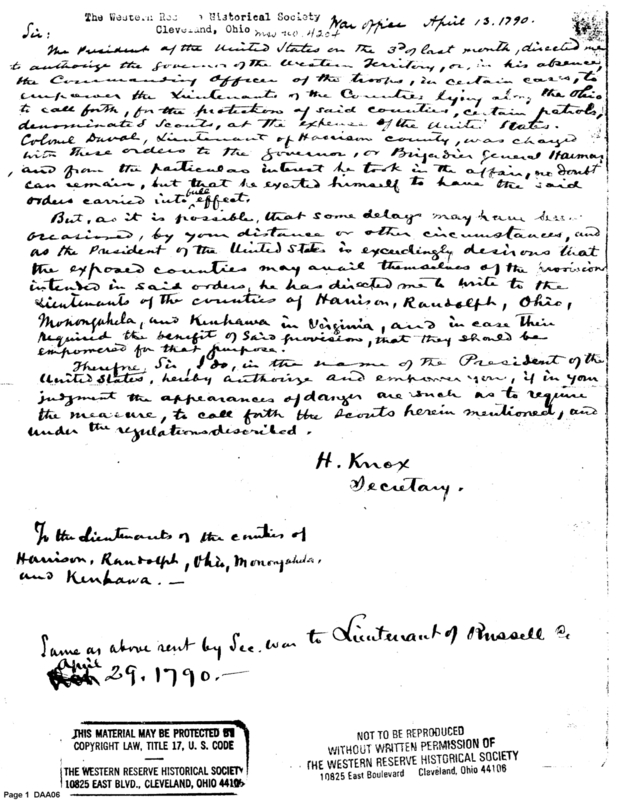 The Western Res Historical Society
Cleveland, Ohio mss no. 4204
War office April 13. 1790.
Sir:
The President of the United States on the 3d of last month, directed me
to authorize the Governor of the Western Territory, or, in his absence,
the Commanding Officer of the troops, in certain cases, to
empower the Lieutenants of the Counties lying along the Ohio
to call forth, for the protection of said counties, certain patrols,
denominated Scouts, at the expense of the United States.
Colonel Duval, Lieutenant of Harrison county, was charged
with these orders to the Governor, or Brigadier General Harmar,
and from the particular interest he took in the affair, no doubt
can remain, but that he exerted himself to have the said
orders carried into full effect.
But, as it is possible, that some delays may have been
occasioned, by your distance or other circumstances, and
as the President of the United States is exceedingly desirous that
the exposed counties may avail themselves of the provision
intended in said orders, he has directed me to write to the
Lieutenants of the counties of Harrison, Randolph, Ohio,
Monongahela, and Kenhawa in Virginia, and in case their
required the benefit of said provision, that they should be
empowered for that purpose.
Therefore, Sir, I do, in the name of the President of the
United States, hereby authorize and empower you, if in your
judgment the appearances of danger are such as to require
the measure, to call forth the scouts herein mentioned, and
under the regulations described.
H. Knox
Secretary.
To the Lieutenants of the counties of
Harrison, Randolph, Ohio, Monongahela,
and Kenhawa. —
Same as above sent by Sec. War to Lieutenant of Russell
April
29. 1790. —
THIS MATERIAL MAY BE PROTECTED BY
COPYRIGHT LAW, TITLE 17, U. S. CODE
THE WESTERN RESERVE HISTORICAL SOCIETY
10825 EAST BLVD., CLEVELAND, OHIO 44106
NOT TO BE REPRODUCED
WITHOUT WRITTEN PERMISSION OF
THE WESTERN RESERVE HISTORICAL SOCIETY
10825 East Boulevard Cleveland, Ohio 44106
Page 1 DAA06